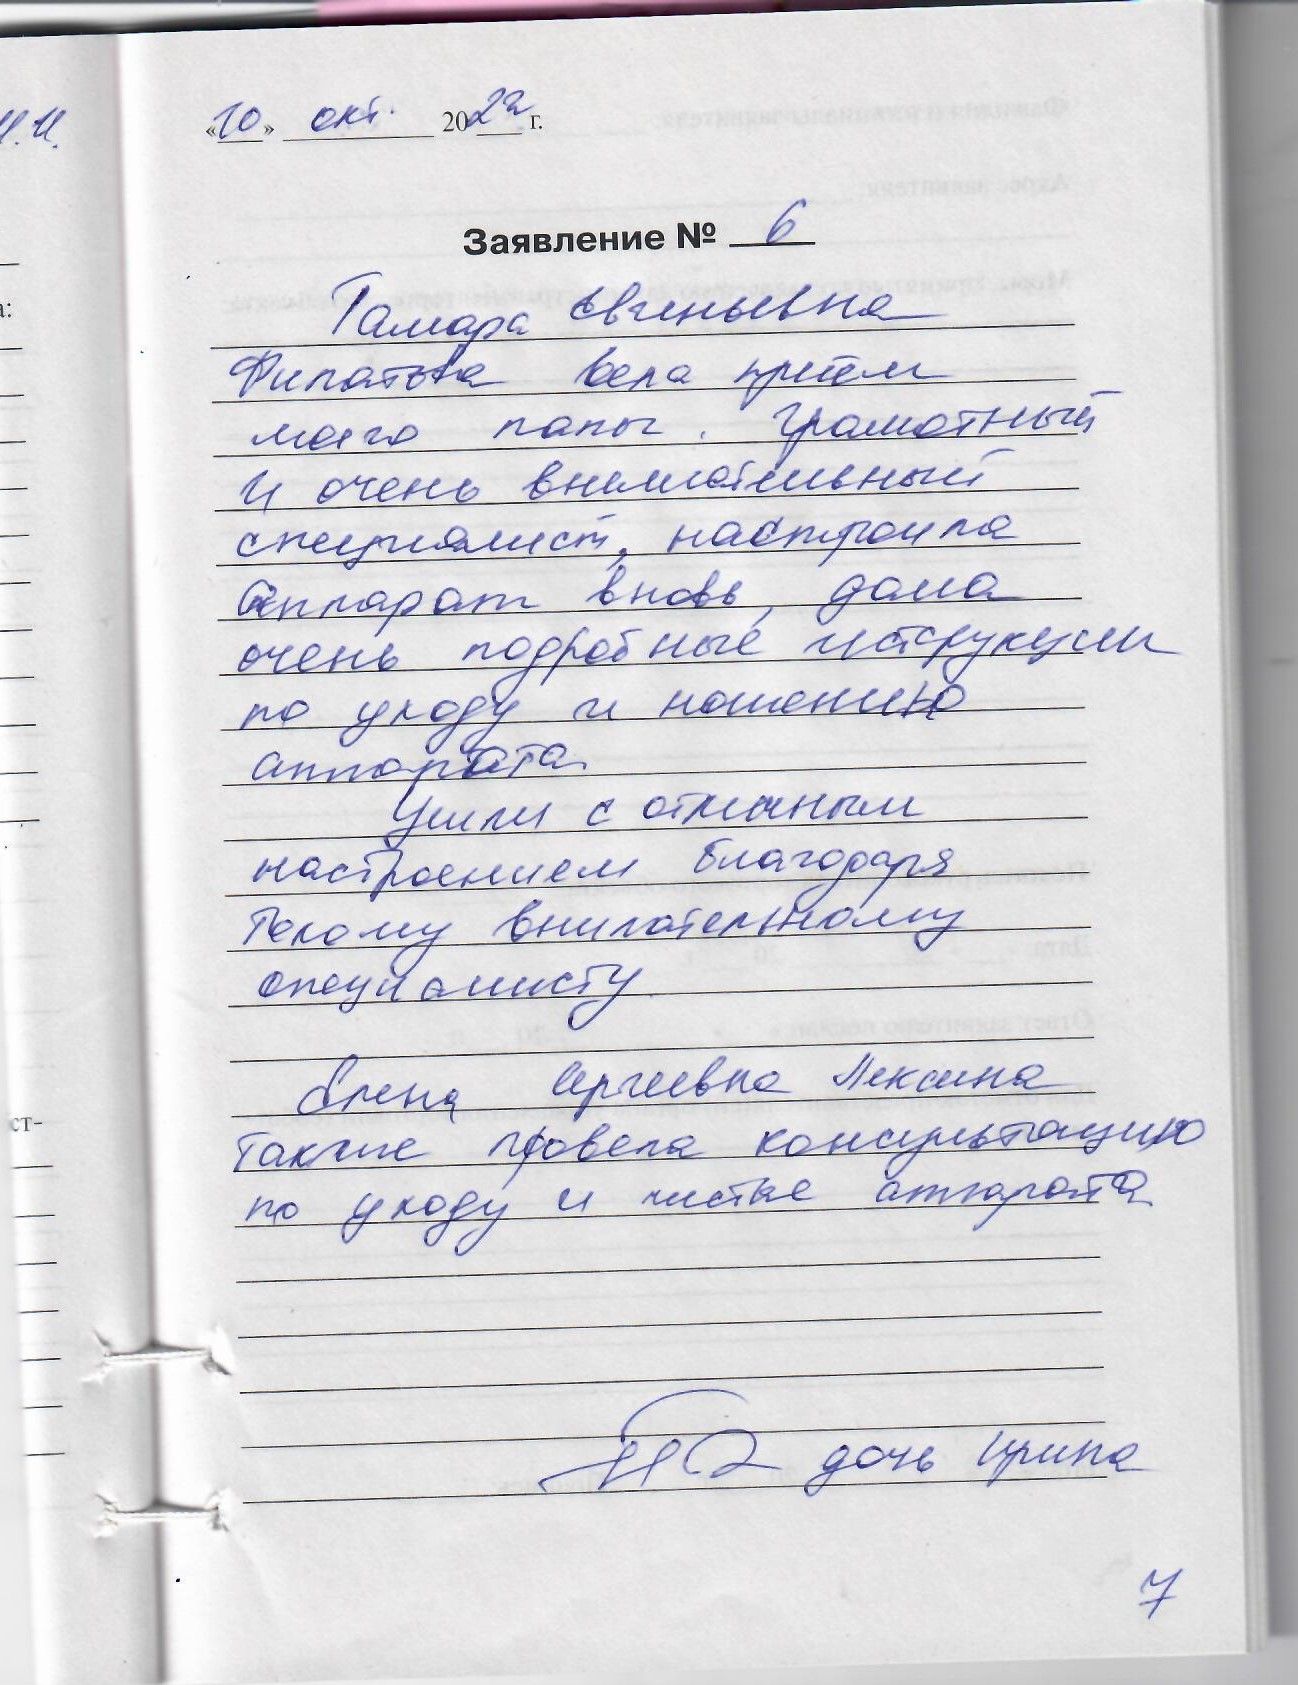 И.И.
а:
ст-
«10» окт. 2022 г.
Заявление № 6
Тамара Евгеньевна
Филатова вела приём
моего папы. Грамотный
и очень внимательный
специалист, настроила
аппарат вновь, дала
очень подробные инструкции
по уходу и ношению
аппарата.
Ушли с отличным
настроением благодаря
такому внимательному
специалисту.
Елена Сергеевна Лексина
также провела консультацию
по уходу и чистке аппарата
дочь Ирина
7